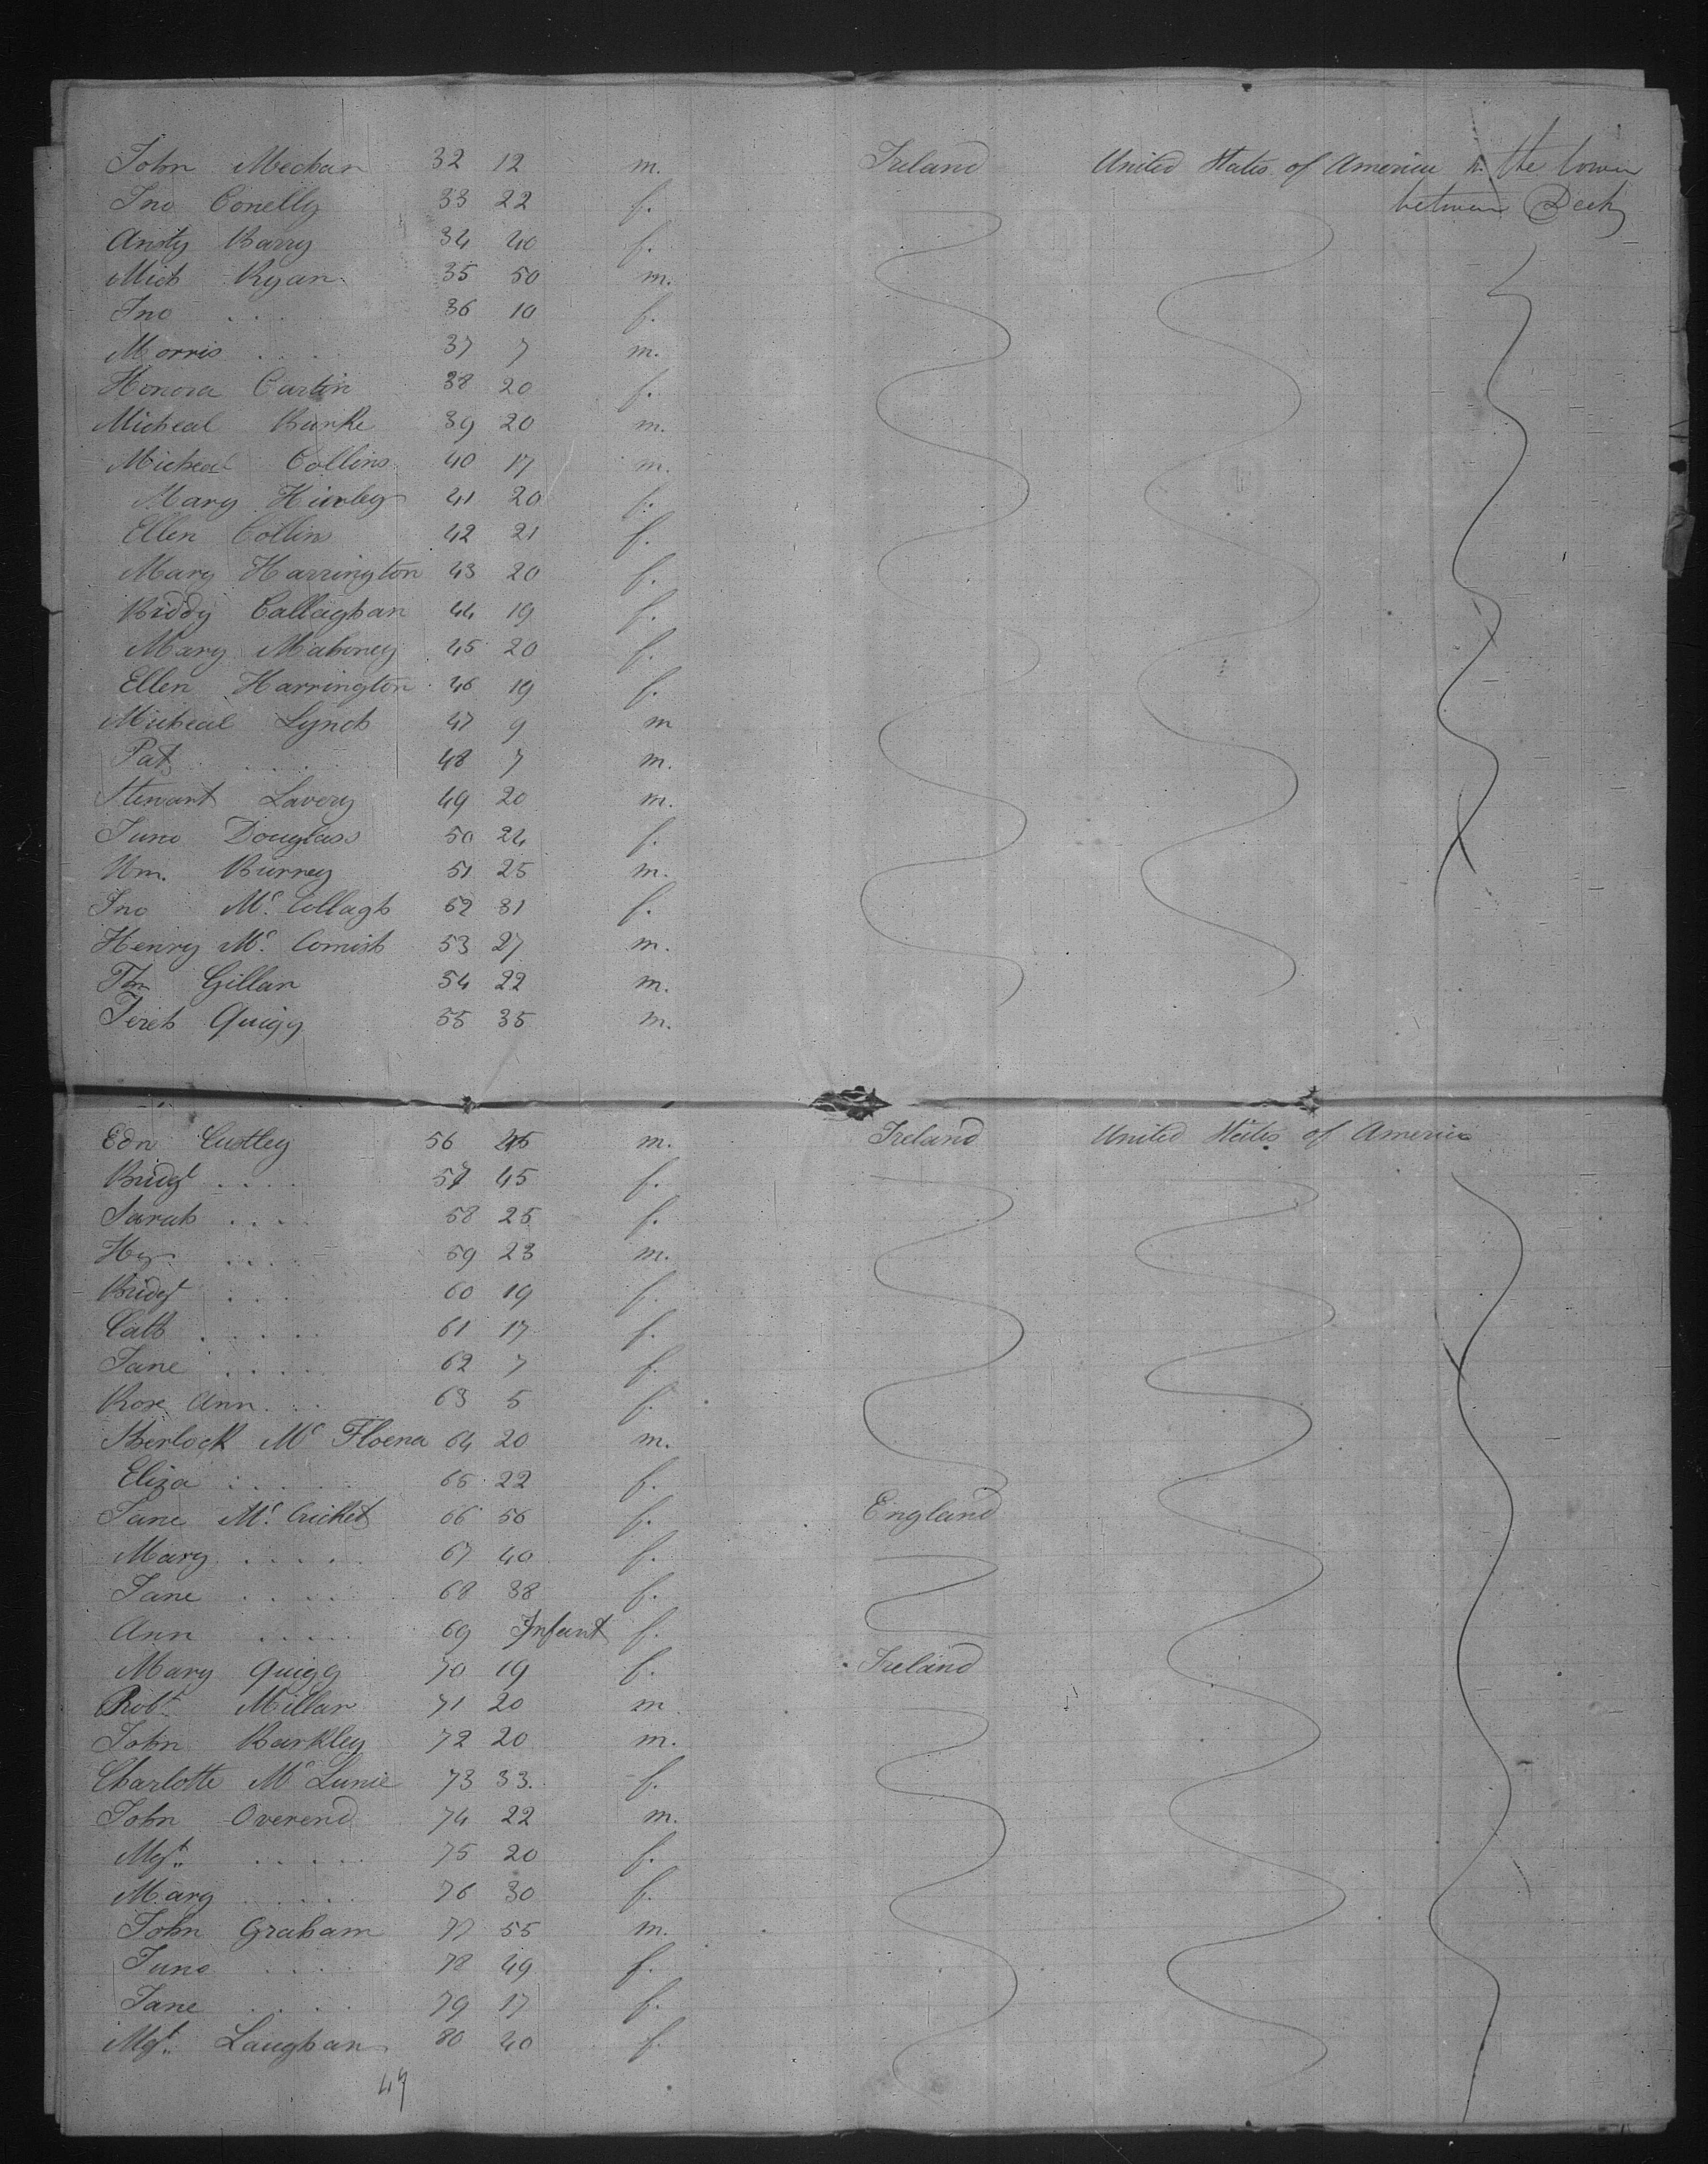 John Mechan 32 12 m. Ireland United States of America In the lower
between Decks
Jno Conelly 33 22 f.
Ansty Barry 34 40 f.
Mich Ryan 35 50 m.
Jno . . . 36 10 f.
Morris . . . . 37 7 m.
Honora Curtin 38 20 f.
Micheal Burke 39 20 m.
Micheal Collins 40 17 m.
Mary Hurley 41 20 f.
Ellen Collins 42 21 f.
Mary Harrington 43 20 f.
Biddy Callaghan 44 19 f.
Mary Mahoney 45 20 f.
Ellen Harrington 46 19 f.
Micheal Lynch 47 9 m
Pat . . . . . 48 7 m.
Stewart Lavery 49 20 m.
June Douglass 50 24 f.
Wm. Burney 51 25 m.
Jno Mc. Collagh 52 31 f.
Henry Mc. Comish 53 27 m.
Thn Gillan 54 22 m.
Fereh Quigg 55 35 m.
Edn Custley 56 45 m. Ireland United States of America
Bridgt . . . . 57 45 f.
Sarah . . . . 58 25 f.
Hy . . . . 59 23 m.
Bridgt . . . 60 19 f.
Cath . . . . . 61 17 f.
Jane . . . . . 62 7 f.
Rose Ann . . . 63 5 f.
Sherlock Mc Floena 64 20 m.
Eliza . . . . . 65 22 f.
Jane Mc. Cricket 66 56 f. England
Mary . . . . . 67 40 f.
Jane . . . . . 68 38 f.
Ann . . . . . 69 Infant f.
Mary Quigg 70 19 f. Ireland
Robt. Millar 71 20 m
John Barkley 72 20 m.
Charlotte Mc Lunie 73 33. f.
John Overend 74 22 m.
Mgt. . . . . . 75 20 f.
Mary . . . . . 76 30 f.
John Graham 77 55 m.
June . . . . 78 49 f.
Jane . . . . 79 17 f.
Mgt. Laughan 80 40 f.
49